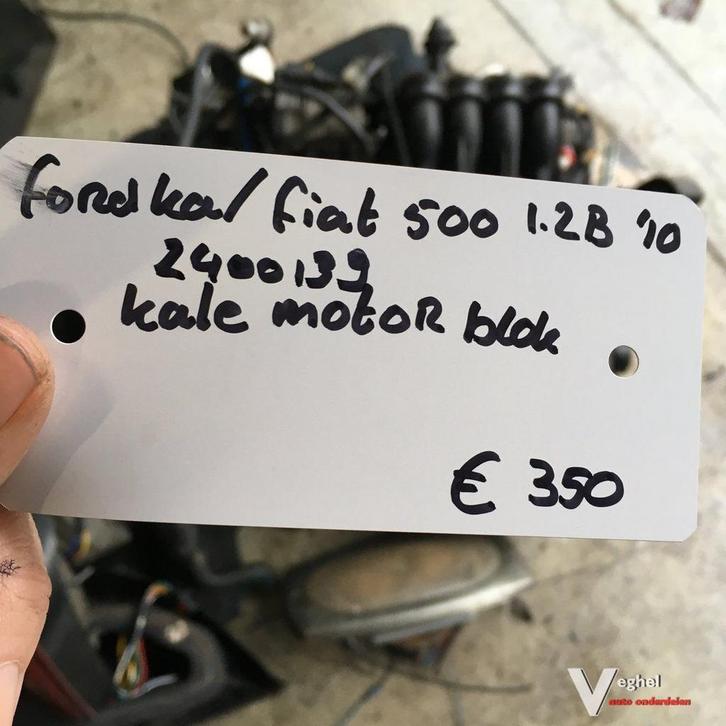 ford ka/fiat 500 1.2B '10
2400139
kale motoR blok
€ 350
Veghel
auto onderdelen